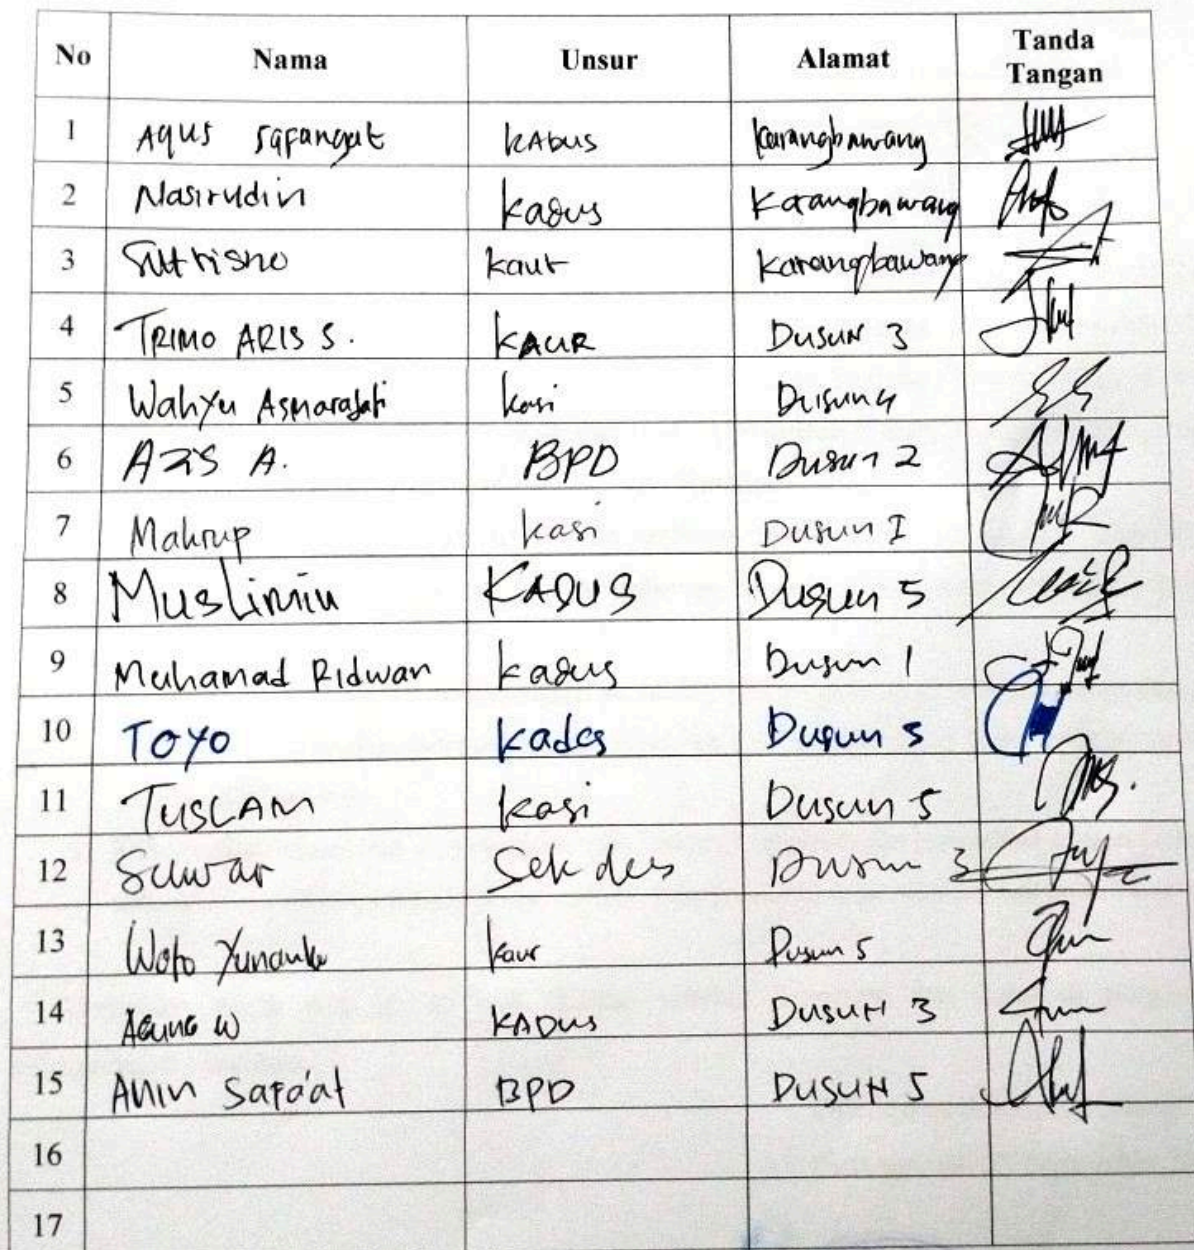 No Nama Unsur Alamat Tanda Tangan
1 Agus Safangat KADUS Karangbawang
2 Nasirudin Kadus Karangbawang
3 Sutrisno Kaur Karangbawang
4 TRIMO ARIS S. KAUR DUSUN 3
5 Wahyu Asmarajati Kasi Dusun 4
6 AZIS A. BPD Dusun 2
7 Mahrup Kasi Dusun I
8 Muslimin KADUS Dusun 5
9 Muhamad Ridwan Kadus Dusun 1
10 TOYO Kades Dusun 5
11 TUSLAM Kasi Dusun 5
12 Suwar Sekdes Dusun 3
13 Woto Kaur Dusun 5
14 AGUNG W KADUS DUSUN 3
15 Amin Safa'at BPD DUSUN 5
16
17